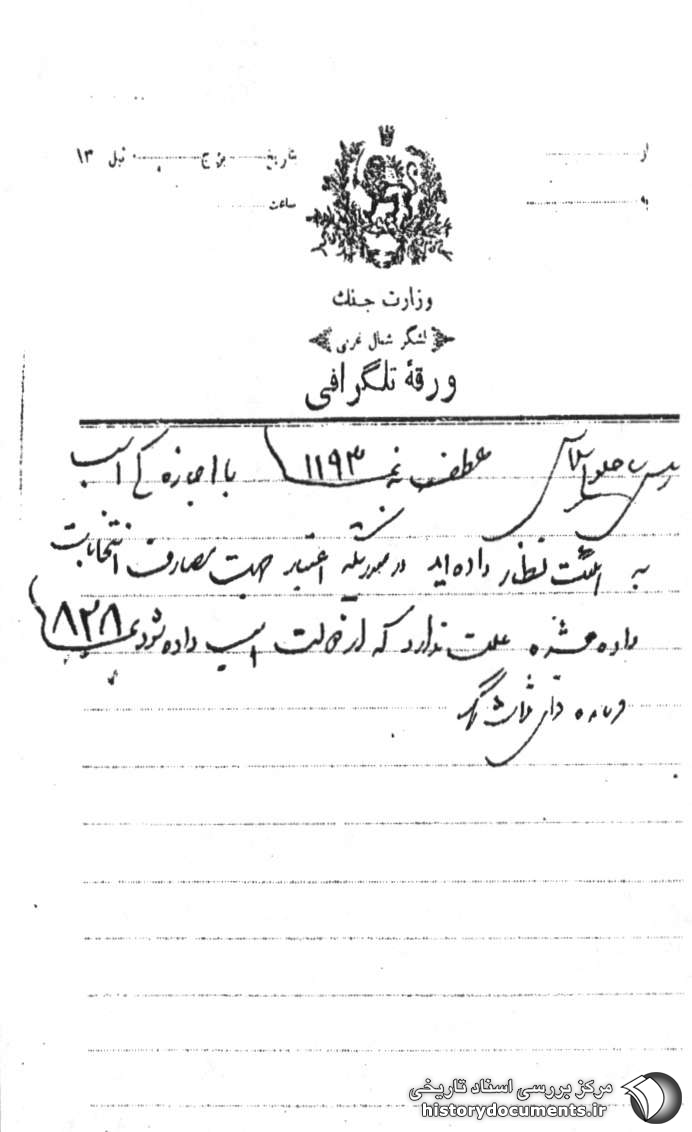 از
به
تاریخ برج ئیل ۱۳
ساعت
وزارت جنگ
لشگر شمال غربی
ورقهٔ تلگرافی
عطف به نمره ۱۱۹۳ با اجازه کی اسب
به هیئت نظار داده‌اید در صورتیکه اعتبار جهت مصارف انتخابات
داده شده علت ندارد که از دولت اسب داده شود نمره ۸۲۸
فرمانده
مرکز بررسی اسناد تاریخی
historydocuments.ir